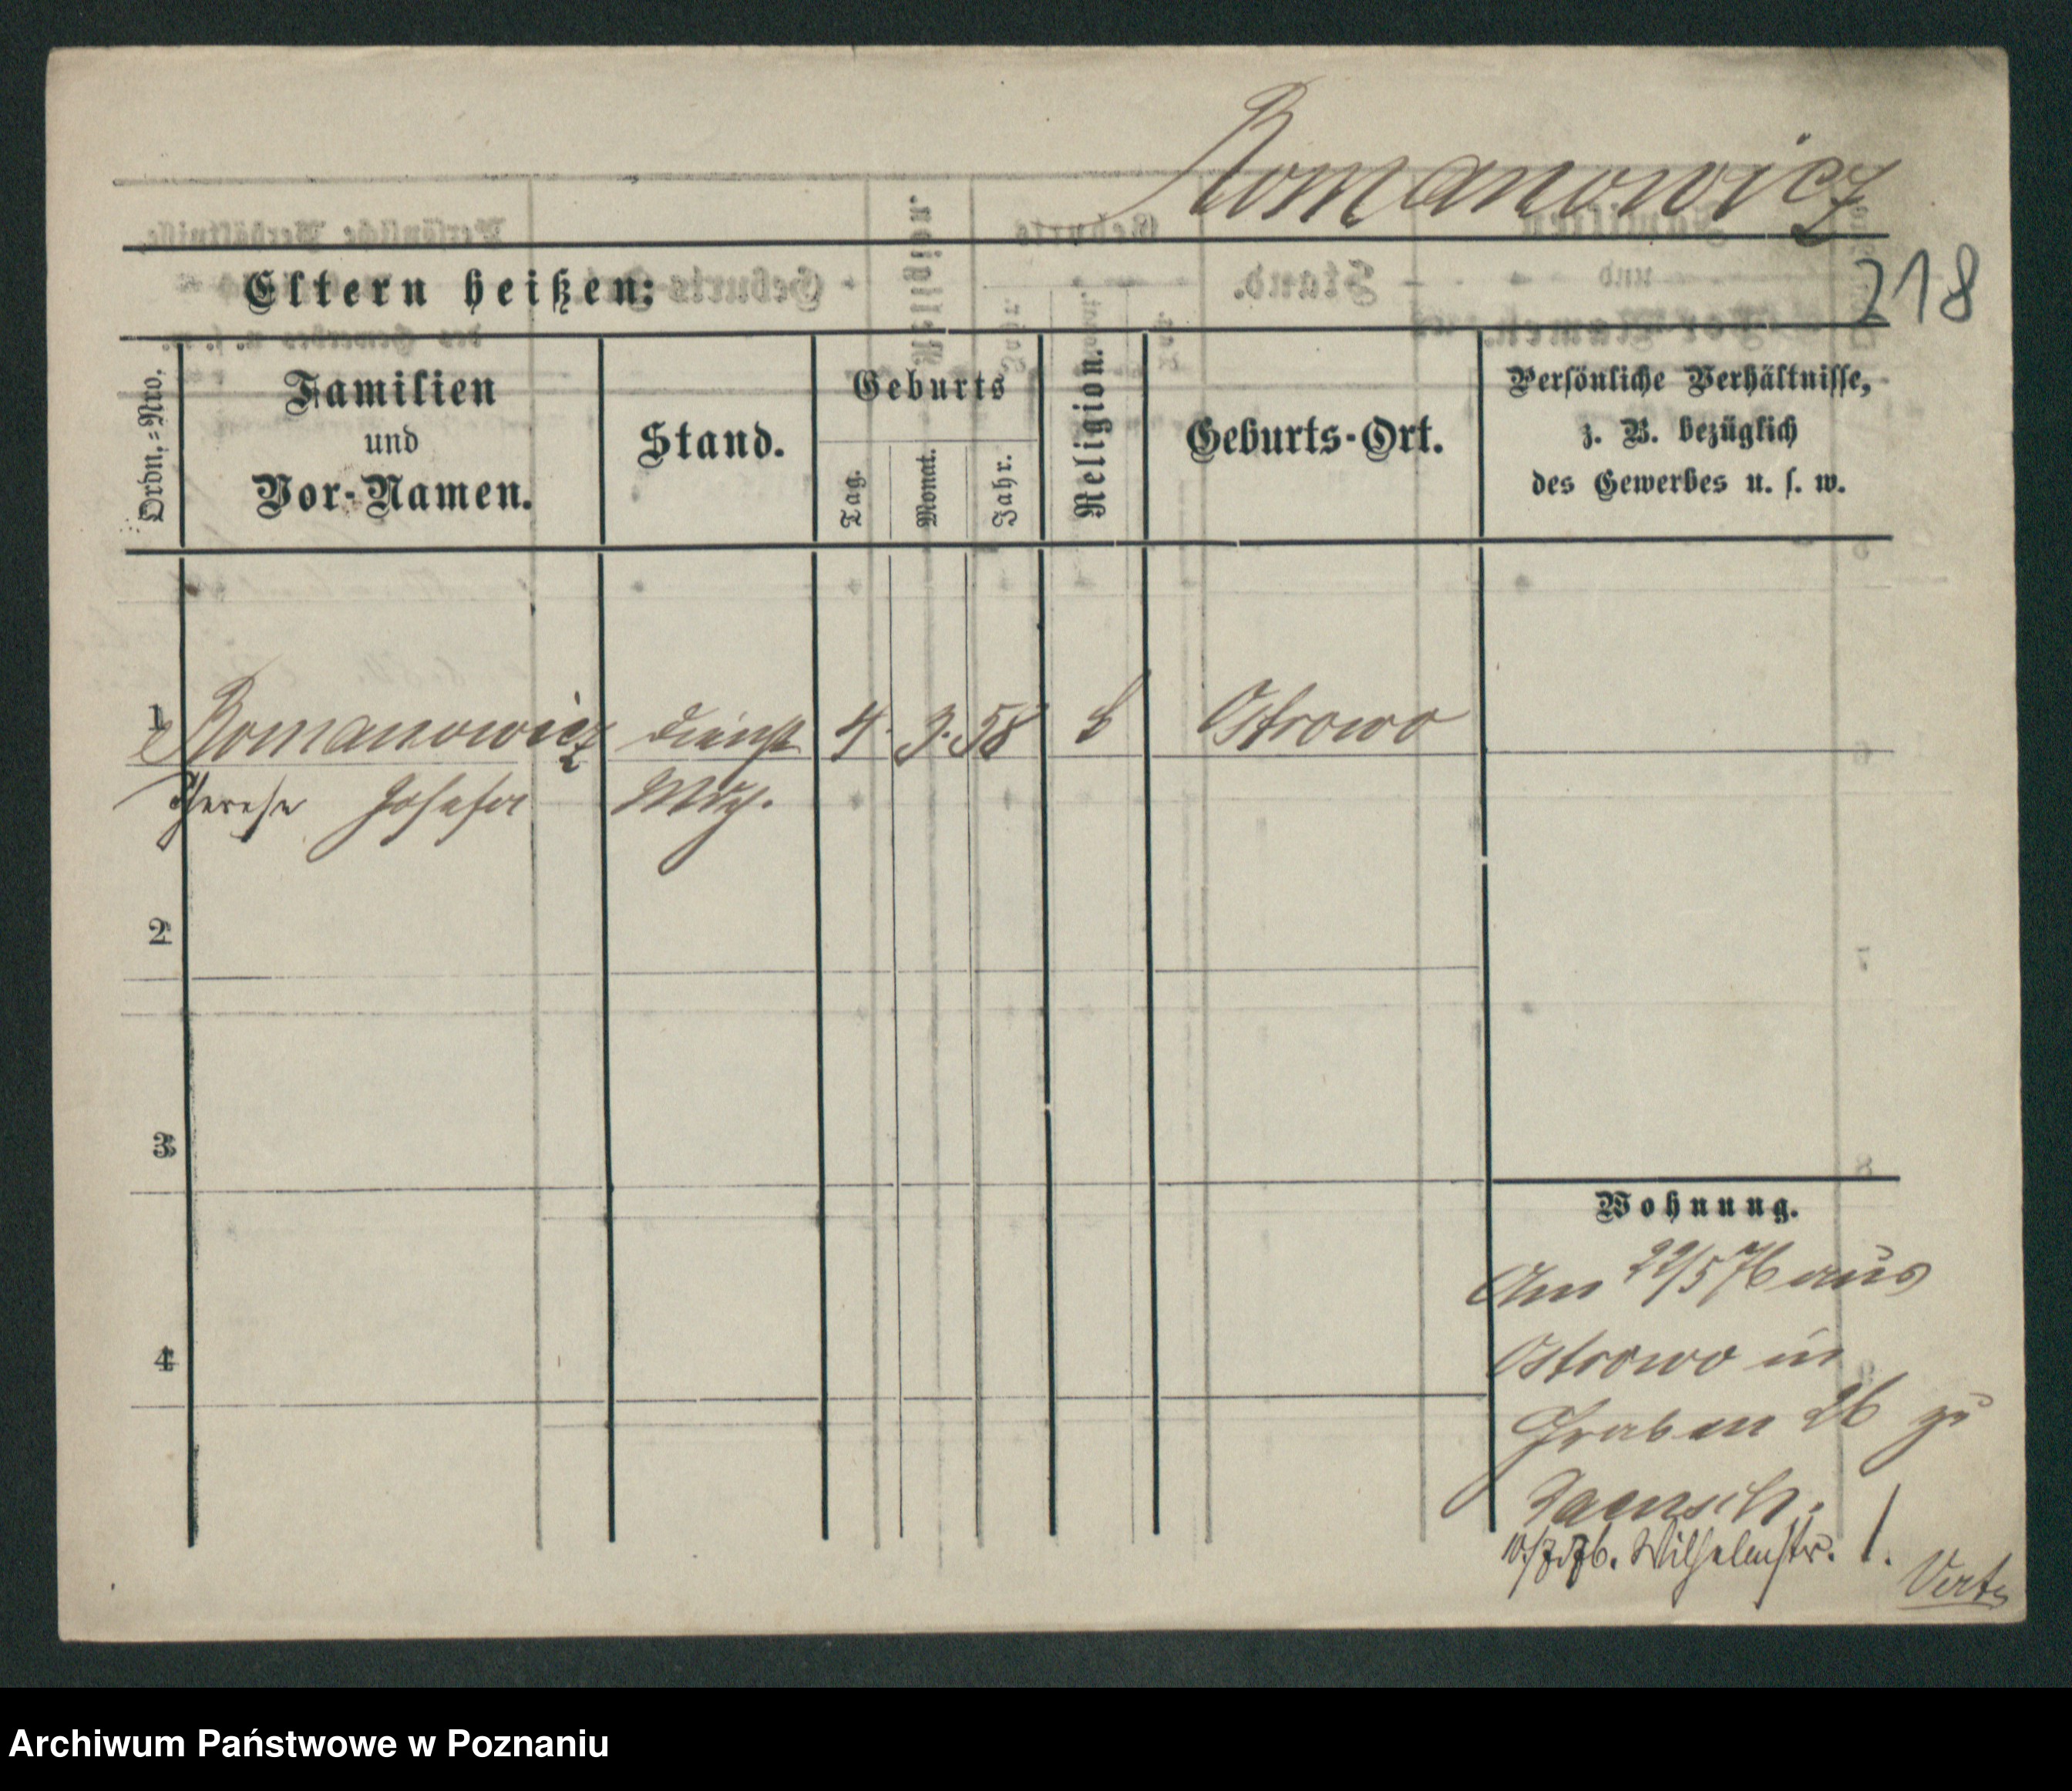 Romanowicz
218
Eltern heißen:
Ordn.=Nro.
Familien
und
Vor-Namen.
Stand.
Geburts
Tag.
Monat.
Jahr.
Religion.
Geburts-Ort.
Persönliche Verhältnisse,
z. B. bezüglich
des Gewerbes u. s. w.
1 Romanowicz Dienst 4. 3. 58 Ostrowo
Therese Josefa
2
3
4
Wohnung.
Am 22/5 76 aus
Ostrowo in
Graben 26 zu
10/7 76. Wilhelmstr. 1.
Vert
Archiwum Państwowe w Poznaniu